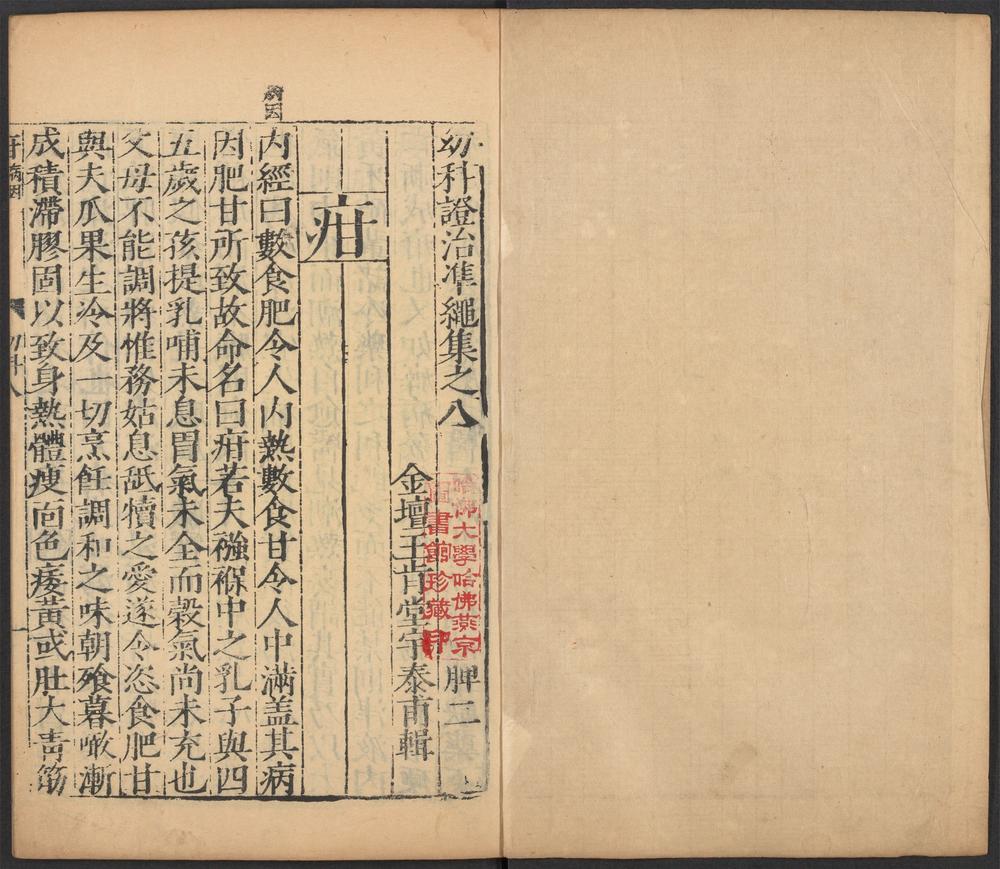 幼科證治凖繩集之八 脾二 上
金壇王肯堂宇泰甫輯
哈佛大學哈佛燕京
圖書館珍藏印
疳
病因
內經曰數食肥令人內熱數食甘令人中滿蓋其病
因肥甘所致故命名曰疳若夫襁褓中之乳子與四
五歲之孩提乳哺未息胃氣未全而穀氣尚未充也
父母不能調將惟務姑息舐犢之愛遂令恣食肥甘
與夫瓜果生冷及一切烹飪調和之味朝飱暮噉漸
成積滯膠固以致身熱體瘦面色痿黃或肚大青筋
疳病因
幼科八
一